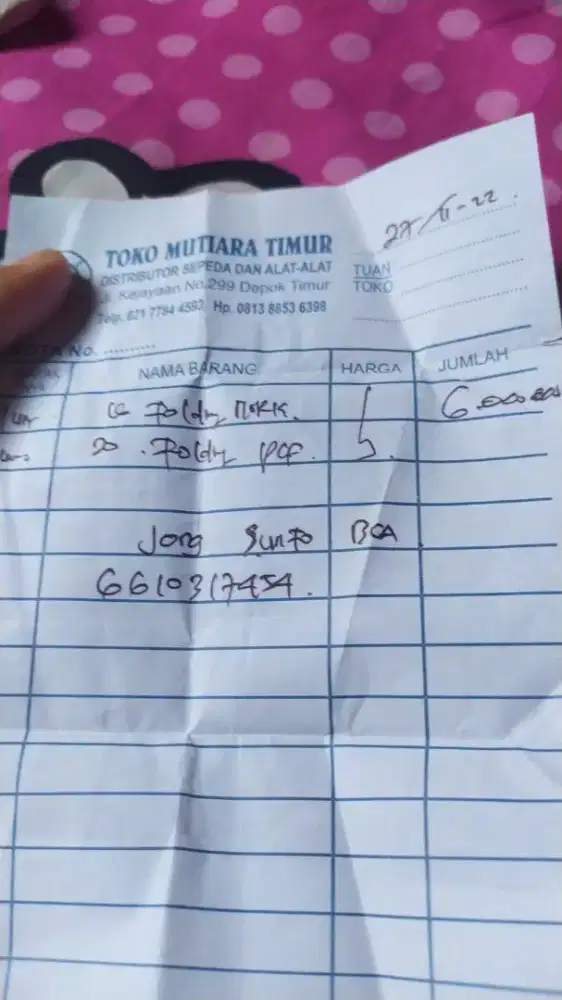 27/11-22
TOKO MUTIARA TIMUR
DISTRIBUTOR SEPEDA DAN ALAT-ALAT
Kejayaan No.299 Depok Timur
Telp. 021 7784 4592 Hp. 0813 8853 6398
TUAN
TOKO
NOTA No. ..........
NAMA BARANG HARGA JUMLAH
16 Foldy 6.000.000
20 . Foldy
Jong Sunfo BCA
6610317454.